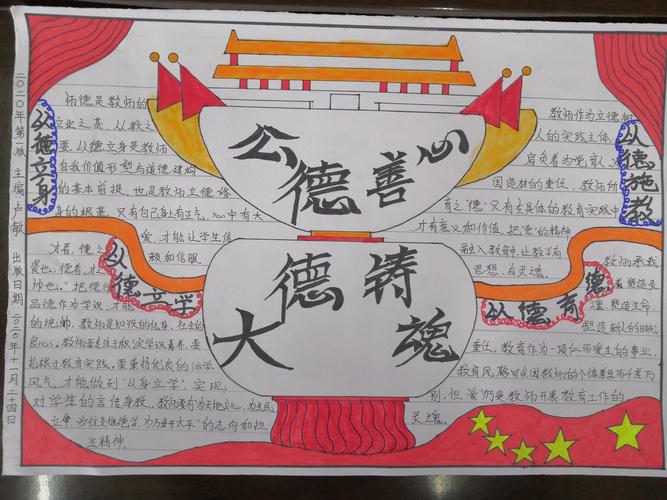 二〇二〇年第一版 主编 卢敏 出版日期 二〇二〇年十一月二十四日
公德善心
大德铸魂
从德立身
师德是教师的
立业之基、从教之
要,从德立身是教师
自我价值形塑与道德建构
的基本前提,也是教师立德修
身的根基。只有自己身上有正气,心中有大
爱,才能让学生信
服和信服
从德立学
才者,德之
资也;德者,才
帅也。"把德
品德作为学识、才能
的统帅,教师是知识的化身、社会的
良心,教师要专注于积淀学识素养,要
扎根于教育实践,要秉持优良的治学
风气,才能做到"从身立学",实现
对学生的言传身教,教师要有"为天地立心,为生民
立命,为往圣继绝学,为万世开太平"的志向和担
义精神。
从德施教
教师作为立德树
人的实践主体,
肩负着为党育人
国造材的重任,教师所
育之"德"只有在具体的教育实践中
才有意义和价值,把"爱"的精神
融入教育中,让教学有
思想、有灵魂。
从德育德
教师承载
着塑造灵
魂、塑造生命
塑造新人的时代
重任,教育作为一项"仁而爱生"的事业,
教育风格可以因教师的个体差异而千差万
别,但"爱"仍是教师开展教育工作的
灵魂。